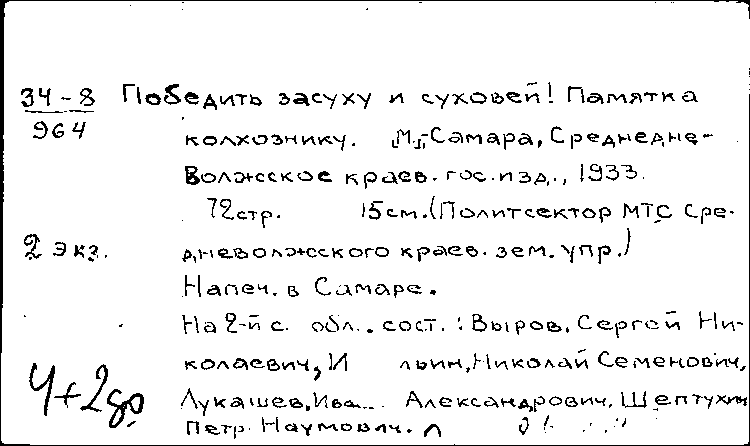 34-8
964
Победить засуху и суховей! Памятка
колхознику. [М]-Самара, Среднедне-
волжское краев. гос. изд., 1933.
72 стр. 15 см. (Политсектор МТС Сре-
2 экз. дневолжского краев. зем. упр.)
Напеч. в Самаре.
На 2-й с. обл. сост.: Выров, Сергей Ни-
колаевич, И льин, Николай Семенович,
Лукашев, Ива... Александрович, Шептухин
Петр Наумович.